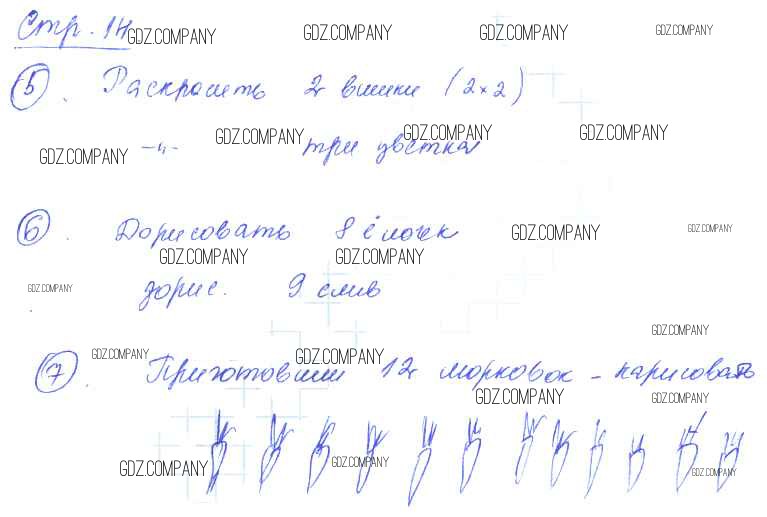 Стр. 14
GDZ.COMPANY GDZ.COMPANY GDZ.COMPANY GDZ.COMPANY
5. Раскрасить 2 вишни (2×2)
GDZ.COMPANY GDZ.COMPANY GDZ.COMPANY GDZ.COMPANY
-"- три цветка
6. Дорисовать 8 ёлочек
GDZ.COMPANY GDZ.COMPANY
GDZ.COMPANY GDZ.COMPANY
GDZ.COMPANY
дорис. 9 слив
GDZ.COMPANY
GDZ.COMPANY GDZ.COMPANY
7. Приготовили 12 морковок - нарисовать
GDZ.COMPANY GDZ.COMPANY
GDZ.COMPANY GDZ.COMPANY GDZ.COMPANY